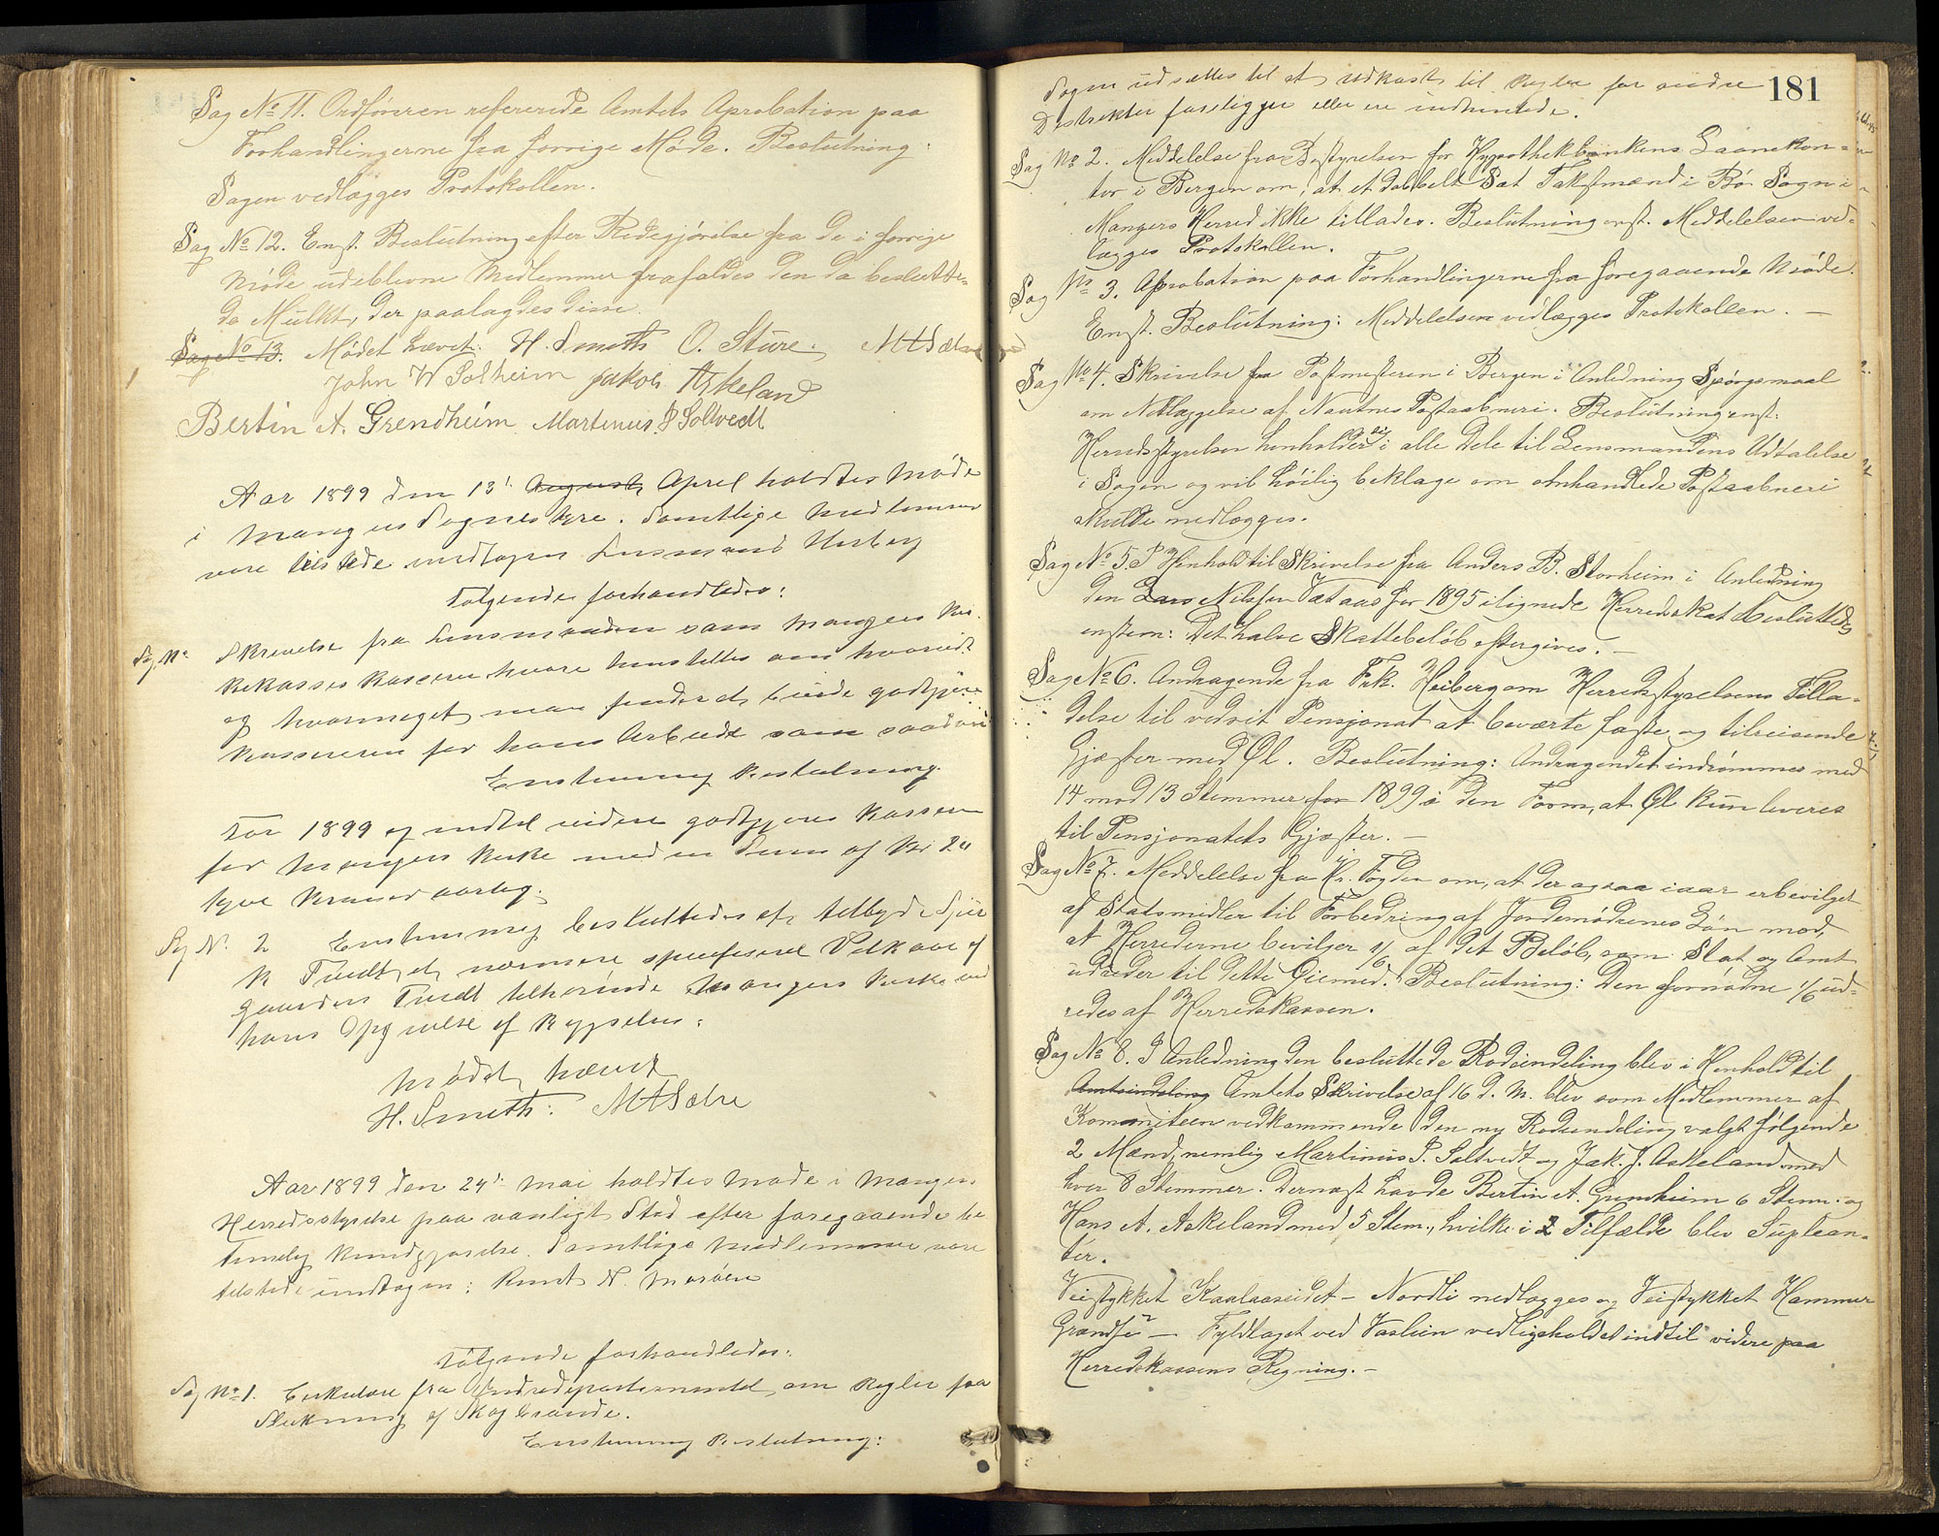 Sag No 11. Ordføreren refererede Amtets Aprobation paa
Forhandlingerne fra forrige Møde. Beslutning:
Sagen vedlægges Protokollen.
Sag No 12. Enst. Beslutning efter Redegjørelse fra de i forrige
Møde udeblevne Medlemmer frafaldes den da beslutte-
de Mulkt, der paalagdes disse.
Sag No 13. Mødet hævet. H. Smeth O. Sture. M H Sæbø
John W Solheim Jakob Askeland
Bertin A. Grendheim Martinus P Soltvedt
Aar 1899 den 13' August April holdtes Møde
i Mangers Sognestyre. Samtlige Medlemmer
vare tilstede undtagen Lensmand Herberg
Følgende forhandledes:
Sag No Skrivelse fra Lensmanden som Mangers Kir-
kekasses Kasserer hvori henstilles om hvorvidt
og hvormeget man finder at burde godtgjøre
Kassereren for hans Arbeide som saadan
Enstemmig Beslutning
For 1899 og indtil videre godtgjøres Kassereren
for Mangers Kirke med en Sum af Kr 20
tyve Kroner aarlig.
Sag No. 2 Enstemmig besluttedes at tilbyde
K Tvedt et nærmere specificeret af
Gaarden Tvedt tilhørende Mangers Kirke ved
hans Opgivelse af Bygselen.
Mødet hævet
H. Smeth. M H Sæbø
Aar 1899 den 24' Mai holdtes Møde i Manger
Herredsstyrelse paa vanligt Sted efter foregaaende be
timelig Kundgjørelse. Samtlige Medlemmer vare
tilstede undtagen: Knut N.
Følgende forhandledes:
Sag No 1. Cirkulære fra Indredepartementet om Regler for
Slukning af Skogbrande.
Enstemmig Beslutning:
181
Sagen udsættes til at Udkast til Regler for andre
Distrikter foreligger eller ere indhentede.
Sag No 2. Meddelelse fra Bestyrelsen for Hypothekbankens Laanekon-
tor i Bergen om, at et dobbelt Sæt Takstmænd i Bø Sogn i
Mangers Herred ikke tillades. Beslutning enst. Meddelelsen ved-
lægges Protokollen.
Sag No 3. Aprobation paa Forhandlingerne fra foregaaende Møde.
Enst. Beslutning: Meddelelsen vedlægges Protokollen. —
Sag No 4. Skrivelse fra Postmesteren i Bergen i Anledning Spørgsmaal
om Nedlæggelse af Nautnes Postaabneri. Beslutning enst.
Herredsstyrelsen henholder sig i alle Dele til Lensmandens Udtalelse
i Sagen og vil høilig beklage om omhandlede Postaabneri
skulde nedlægges.
Sag No 5. I Henhold til Skrivelse fra Anders B. Storheim i Anledning
den Lars Nilssen Vætaas for 1895 ilignede Herredsskat besluttedes
enstem: Det halve Skattebeløb eftergives. —
Sag No 6. Andragende fra Frk. Heiberg om Herredsstyrelsens Tilla-
delse til ved sit Pensjonat at beværte faste og tilreisende
Gjæster med Øl. Beslutning: Andragendet indrømmes med
14 mod 13 Stemmer for 1899 i den Form, at Øl kun leveres
til Pensjonatets Gjæster. —
Sag No 7. Meddelelse fra Hr. Fogden om, at der ogsaa iaar er bevilget
af Statsmidler til Forbedring af Jordemødrenes Løn mod,
at Herrederne bevilger 1/6 af det Beløb, som Stat og Amt
udreder til dette Øiemed. Beslutning: Den fornødne 1/6 ud-
redes af Herredskassen.
Sag No 8. I Anledning den besluttede Rodeindeling blev i Henhold til
Amtsindeling Amtets Skrivelse af 16 d. M. blev som Medlemmer af
Kommiteen vedkommende den ny Rodeindeling valgt følgende
2 Mænd, nemlig Martinus P. Soltvedt og Jak. J. Askeland med
hver 8 Stemmer. Dernæst havde Bertin A. Grendheim 6 Stem. og
Hans A. Askeland med 5 Stem., hvilke i 2 Tilfælde blev Suplean-
ter.
Veistykket Kaalaaseidet – Nordli nedlægges og Veistykket Hammer
– Fyldtaget ved Vaslien vedligeholdes indtil videre paa
Herredskassens Regning. –